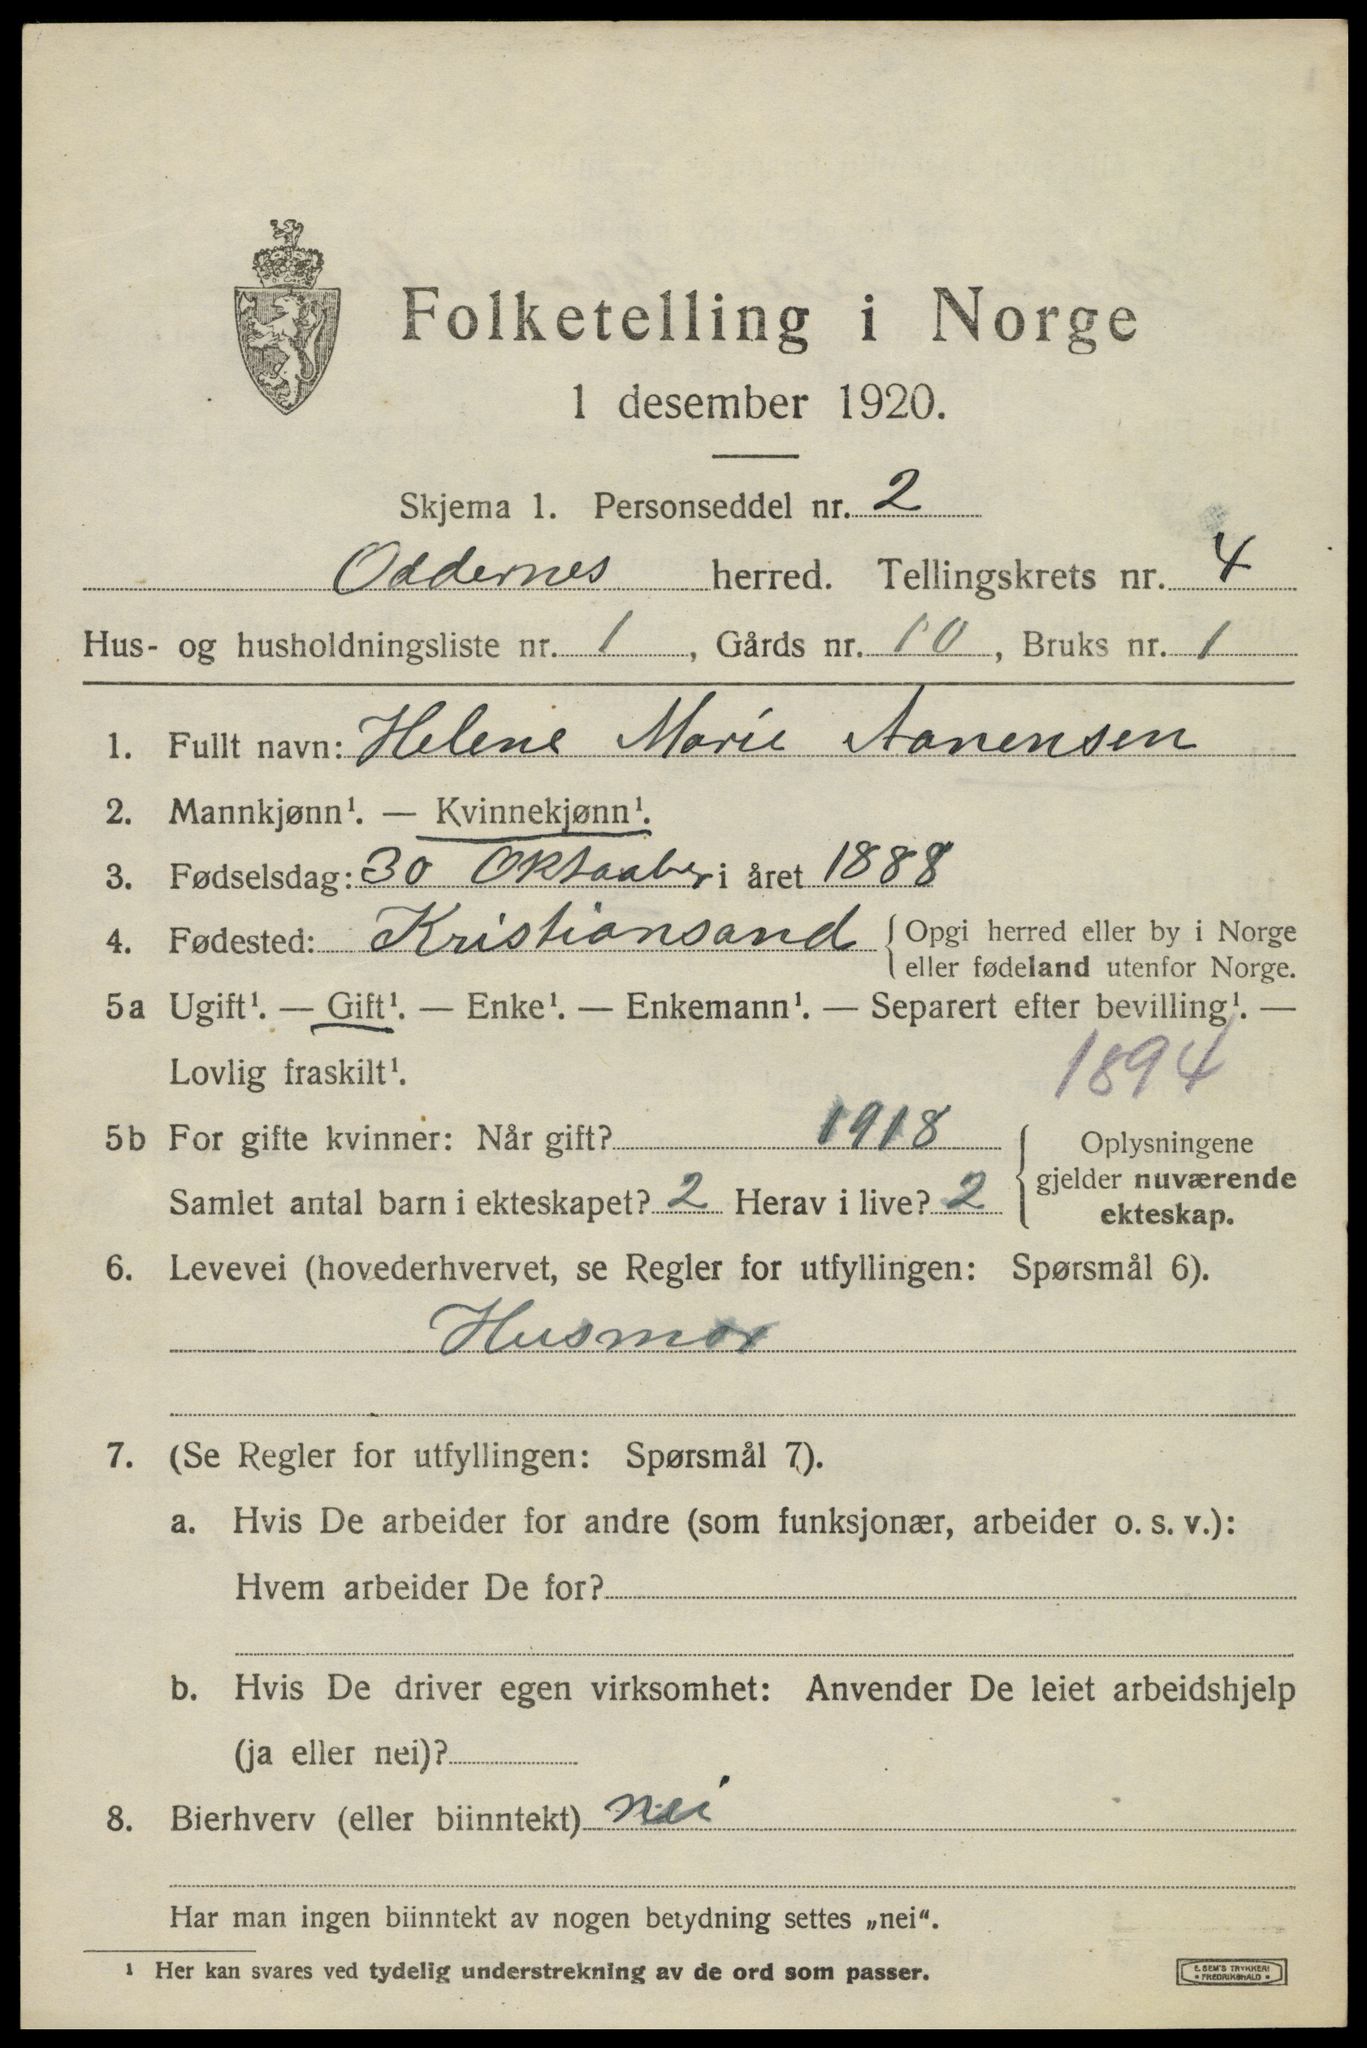 Folketelling i Norge
1 desember 1920.
Skjema 1. Personseddel nr. 2
Oddernes herred. Tellingskrets nr. 4
Hus- og husholdningsliste nr. 1, Gårds nr. 10, Bruks nr. 1
1. Fullt navn: Helene Marie Aanensen
2. Mannkjønn¹. — Kvinnekjønn¹.
3. Fødselsdag: 30 Oktaaber i året 1888
4. Fødested: Kristiansand { Opgi herred eller by i Norge
eller fødeland utenfor Norge.
5a Ugift¹. — Gift¹. — Enke¹. — Enkemann¹. — Separert efter bevilling¹. —
Lovlig fraskilt¹. 1894
5b For gifte kvinner: Når gift? 1918
Samlet antal barn i ekteskapet? 2 Herav i live? 2
{ Oplysningene
gjelder nuværende
ekteskap.
6. Levevei (hovederhvervet, se Regler for utfyllingen: Spørsmål 6).
Husmor
7. (Se Regler for utfyllingen: Spørsmål 7).
a. Hvis De arbeider for andre (som funksjonær, arbeider o. s. v.):
Hvem arbeider De for?
b. Hvis De driver egen virksomhet: Anvender De leiet arbeidshjelp
(ja eller nei)?
8. Bierhverv (eller biinntekt) nei
Har man ingen biinntekt av nogen betydning settes „nei“.
¹ Her kan svares ved tydelig understrekning av de ord som passer.
E. SEM'S TRYKKERI
FREDRIKSHALD